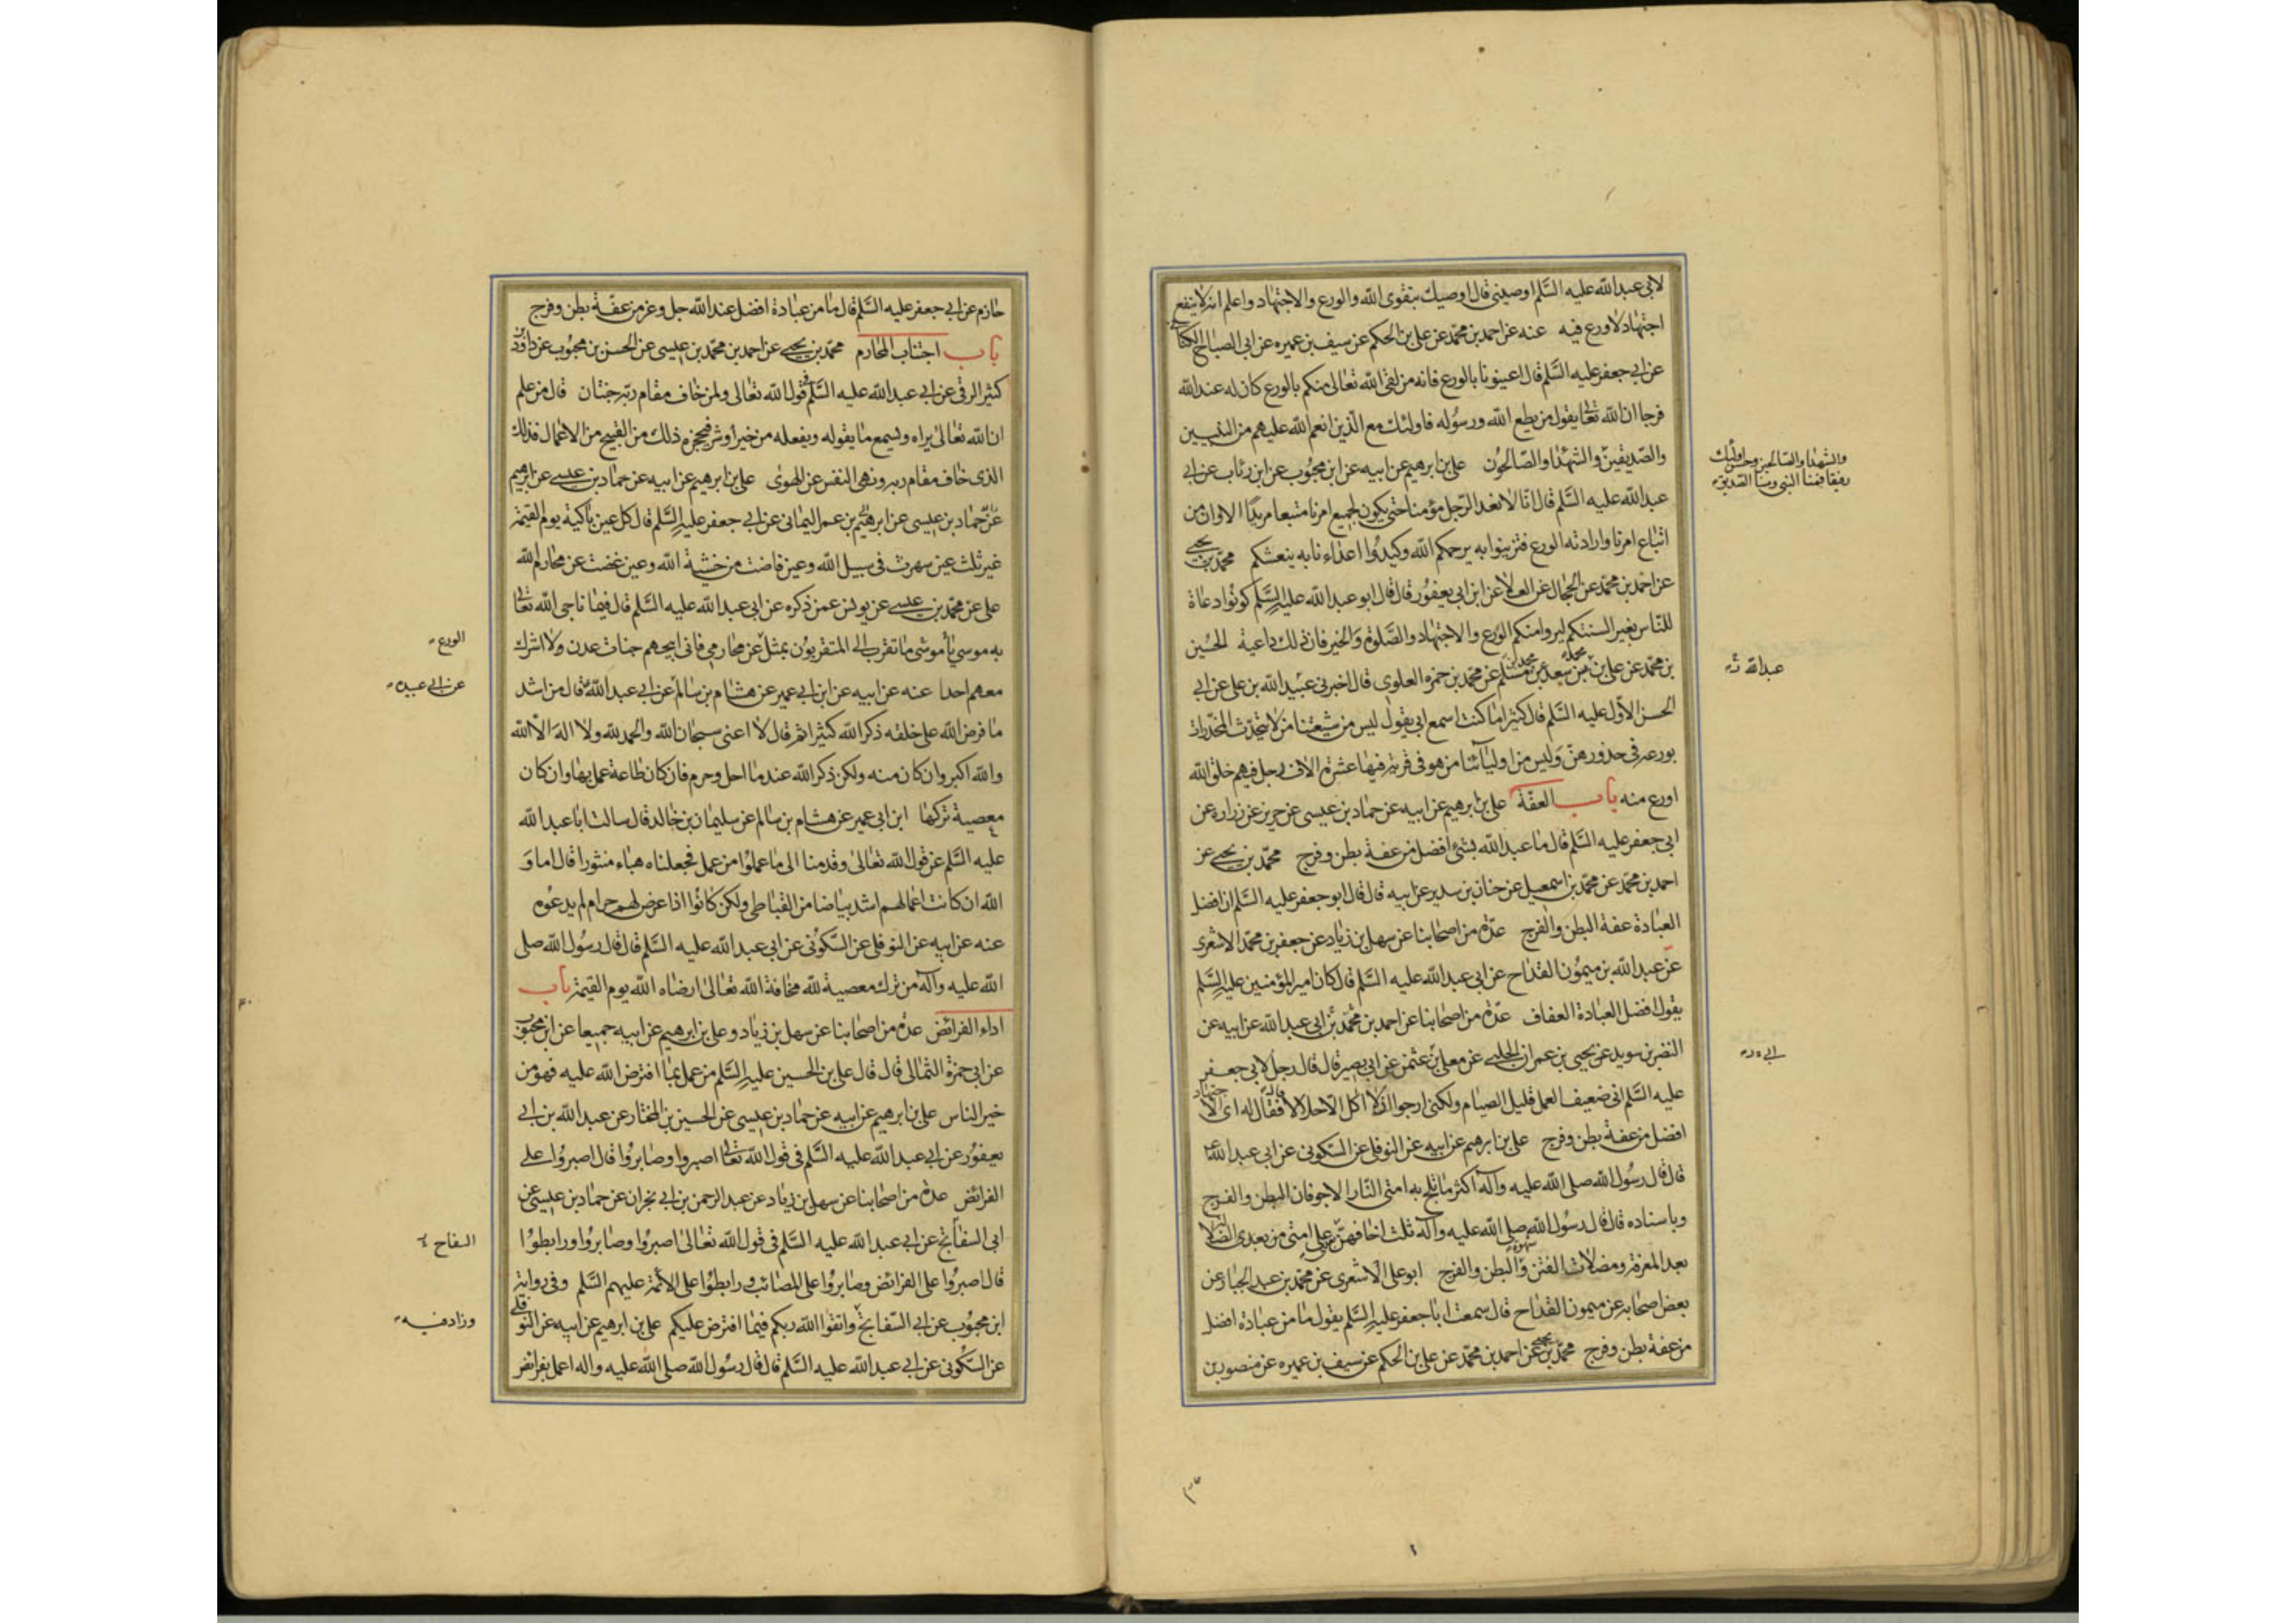 لابى عبدالله عليه السَّلم اوصينى قال اوصيك بتقوى الله والورع والاجتهاد واعلم انه لا ينفع
اجتهاد لاورع فيه عنه عن احمد بن محمّد عن على بن الحكم عن سيف بن عميره عن ابى الصباح الكنانى
عن ابى جعفر عليه السَّلم قال اعينونا بالورع فانه من لقى الله تعالى منكم بالورع كان له عند الله
فرجا ان الله تعالى يقول من يطع الله ورسوله فاولئك مع الّذين انعم الله عليهم من النبيين
والصّديقين والشهداء والصّالحون على بن ابرهيم عن ابيه عن ابن محبوب عن ابن رئاب عن ابى
والشهدا والصالحين وحسن اولئك
رفيقا فمنا النبى ومنا الصديق
عبدالله عليه السَّلم قال انّا لا نعد الرّجل مؤمنا حتى يكون لجميع امرنا متبعا مريدًا الا وان من
اتباع امرنا وارادته الورع فتزينوا به يرحمكم الله وكيدوا اعداءنا به ينعشكم محمّد بن يحيى
عن احمد بن محمّد عن الحجال عن العلا عن ابن ابى يعفور قال قال ابو عبدالله عليه السَّلم كونوا دعاة
للنّاس بغير السنتكم ليروا منكم الورع والاجتهاد والصَّلوة والخير فان ذلك داعية الحسين
بن محمّد عن على بن محمد بن سعد عن محمد بن مسلم عن محمّد بن حمزه العلوى قال اخبرنى عبيد الله بن على عن ابى
عبدالله
الحسن الاوّل عليه السَّلم قال كثيرا ما كنت اسمع ابى يقول ليس من شيعتنا من لا يتحدّث المخدّرات
بورعه فى خدورهنّ وليس من اوليائنا من هو فى قرية فيها عشرة الاف رجل فيهم خلق الله
اورع منه باب العفّة على بن ابرهيم عن ابيه عن حماد بن عيسى عن حريز عن زراره عن
ابى جعفر عليه السَّلم قال ما عبد الله بشئ افضل من عفة بطن وفرج محمّد بن يحيى عن
احمد بن محمّد عن محمّد بن اسمعيل عن حنان بن سدير عن ابيه قال قال ابو جعفر عليه السَّلم ان افضل
العبادة عفة البطن والفرج عدّة من اصحابنا عن سهل بن زياد عن جعفر بن محمّد الاشعرى
عن عبدالله بن ميمون القداح عن ابى عبدالله عليه السَّلم قال كان امير المؤمنين عليه السَّلم
يقول افضل العبادة العفاف عدّة من اصحابنا عن احمد بن محمّد بن ابى عبدالله عن ابيه عن
النضر بن سويد عن يحيى بن عمران الحلبى عن معلى بن عثمن عن ابى بصير قال قال رجل لابى جعفر
عليه السَّلم انى ضعيف العمل قليل الصيام ولكنى ارجو ان لا اكل الا حلالا قال فقال له اى الاجتهاد
افضل من عفة بطن وفرج على بن ابرهيم عن ابيه عن النوفلى عن السّكونى عن ابى عبدالله ع
قال قال رسول الله صلى الله عليه وآله اكثر ما تلج به امتى النّار الاجوفان البطن والفرج
وباسناده قال قال رسول الله صلى الله عليه وآله ثلث اخافهنّ على امتى من بعدى الضلالة
بعد المعرفة ومضلات الفتن وشهوة البطن والفرج ابو على الاشعرى عن محمّد بن عبد الجبار عن
بعض اصحابه عن ميمون القداح قال سمعت ابا جعفر عليه السَّلم يقول ما من عبادة افضل
من عفة بطن وفرج محمّد بن يحيى عن احمد بن محمّد عن على بن الحكم عن سيف بن عميره عن منصور بن
حازم عن ابى جعفر عليه السَّلم قال ما من عبادة افضل عند الله جل وعز من عفّة بطن وفرج
باب اجتناب المحارم محمّد بن يحيى عن احمد بن محمّد بن عيسى عن الحسن بن محبوب عن داود بن
كثير الرقى عن ابى عبدالله عليه السَّلم فى قول الله تعالى ولمن خاف مقام ربّه جنتان قال من علم
ان الله تعالى يراه ويسمع ما يقوله ويفعله من خير او شر فيحجزه ذلك من القبيح من الاعمال فذلك
الذى خاف مقام ربه ونهى النفس عن الهوى على بن ابرهيم عن ابيه عن حماد بن عيسى عن ابرهيم
عن حماد بن عيسى عن ابرهيم بن عمر اليمانى عن ابى جعفر عليه السَّلم قال كل عين باكية يوم القيمة
غير ثلث عين سهرت فى سبيل الله وعين فاضت من خشية الله وعين غضت عن محارم الله
على عن محمّد بن عيسى عن يونس عمن ذكره عن ابى عبدالله عليه السَّلم قال فيما ناجى الله تعالى
به موسى يا موسى ما تقرب الى المتقربون بمثل عن محارمى فانى ابيحهم جنات عدن ولا اشرك
الورع
معهم احدا عنه عن ابيه عن ابن ابى عمير عن هشام بن سالم عن ابى عبدالله قال من اشد
عن ابى عبيده
ما فرض الله على خلقه ذكر الله كثيرا ثم قال لا اعنى سبحان الله والحمد لله ولا اله الّا الله
والله اكبر وان كان منه ولكن ذكر الله عند ما احل وحرم فان كان طاعة عمل بها وان كان
معصية تركها ابن ابى عمير عن هشام بن سالم عن سليمان بن خالد قال سالت ابا عبدالله
عليه السَّلم عن قول الله تعالى وقدمنا الى ما عملوا من عمل فجعلناه هباء منثورا قال اما و
الله ان كانت اعمالهم اشد بياضا من القباطى ولكن كانوا اذا عرض لهم حرام لم يدعوه
عنه عن ابيه عن النوفلى عن السّكونى عن ابى عبدالله عليه السَّلم قال قال رسول الله صلى
الله عليه وآله من ترك معصية لله مخافة الله تعالى ارضاه الله يوم القيمة باب
اداء الفرائض عدة من اصحابنا عن سهل بن زياد وعلى بن ابرهيم عن ابيه جميعا عن ابن محبوب
عن ابى حمزة الثمالى قال قال على بن الحسين عليه السَّلم من عمل بما افترض الله عليه فهو من
خير الناس على بن ابرهيم عن ابيه عن حماد بن عيسى عن الحسين بن المختار عن عبدالله بن ابى
يعفور عن ابى عبدالله عليه السَّلم فى قول الله تعالى اصبروا وصابروا قال اصبروا على
الفرائض عدة من اصحابنا عن سهل بن زياد عن عبد الرحمن بن ابى نجران عن حماد بن عيسى عن
ابى السفاتج عن ابى عبدالله عليه السَّلم فى قول الله تعالى اصبروا وصابروا ورابطوا
السفاح
قال اصبروا على الفرائض وصابروا على المصائب ورابطوا على الائمة عليهم السَّلم وفى رواية
ابن محبوب عن ابى السّفاتج واتقوا الله ربكم فيما افترض عليكم على بن ابرهيم عن ابيه عن النوفلى
وزاد فيه
عن السَّكونى عن ابى عبدالله عليه السَّلم قال قال رسول الله صلى الله عليه واله اعمل بفرائض